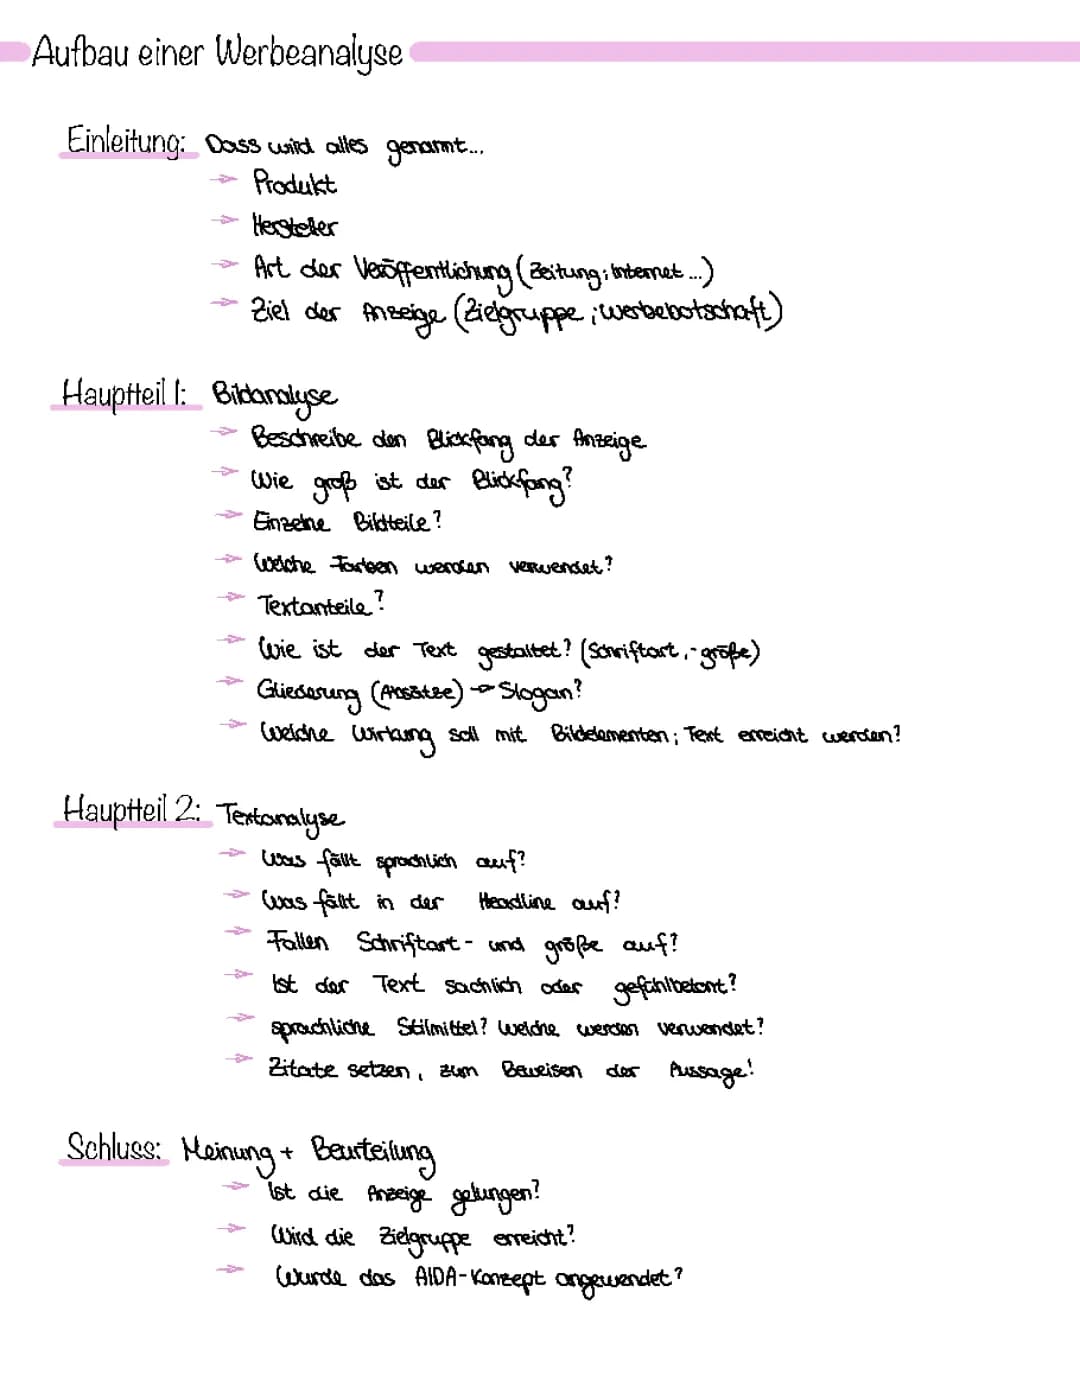 Aufbau einer Werbeanalyse
Einleitung: Dass wird alles genannt...
Produkt
Hersteller
Art der Veröffentlichung (Zeitung; Internet ...)
Ziel der Anzeige (Zielgruppe; Werbebotschaft)
Hauptteil 1: Bildanalyse
Beschreibe den Blickfang der Anzeige
Wie groß ist der Blickfang?
Einzelne Bildteile?
Welche Farben werden verwendet?
Textanteile?
Wie ist der Text gestaltet? (Schriftart, -größe)
Gliederung (Ansätze) → Slogan?
Welche Wirkung soll mit Bildelementen; Text erreicht werden?
Hauptteil 2: Textanalyse
Was fällt sprachlich auf?
Was fällt in der Headline auf?
Fallen Schriftart- und größe auf?
Ist der Text sachlich oder gefühlbetont?
sprachliche Stilmittel? Welche werden verwendet?
Zitate setzen, zum Beweisen der Aussage!
Schluss: Meinung + Beurteilung
Ist die Anzeige gelungen?
Wird die Zielgruppe erreicht?
Wurde das AIDA-Konzept angewendet?